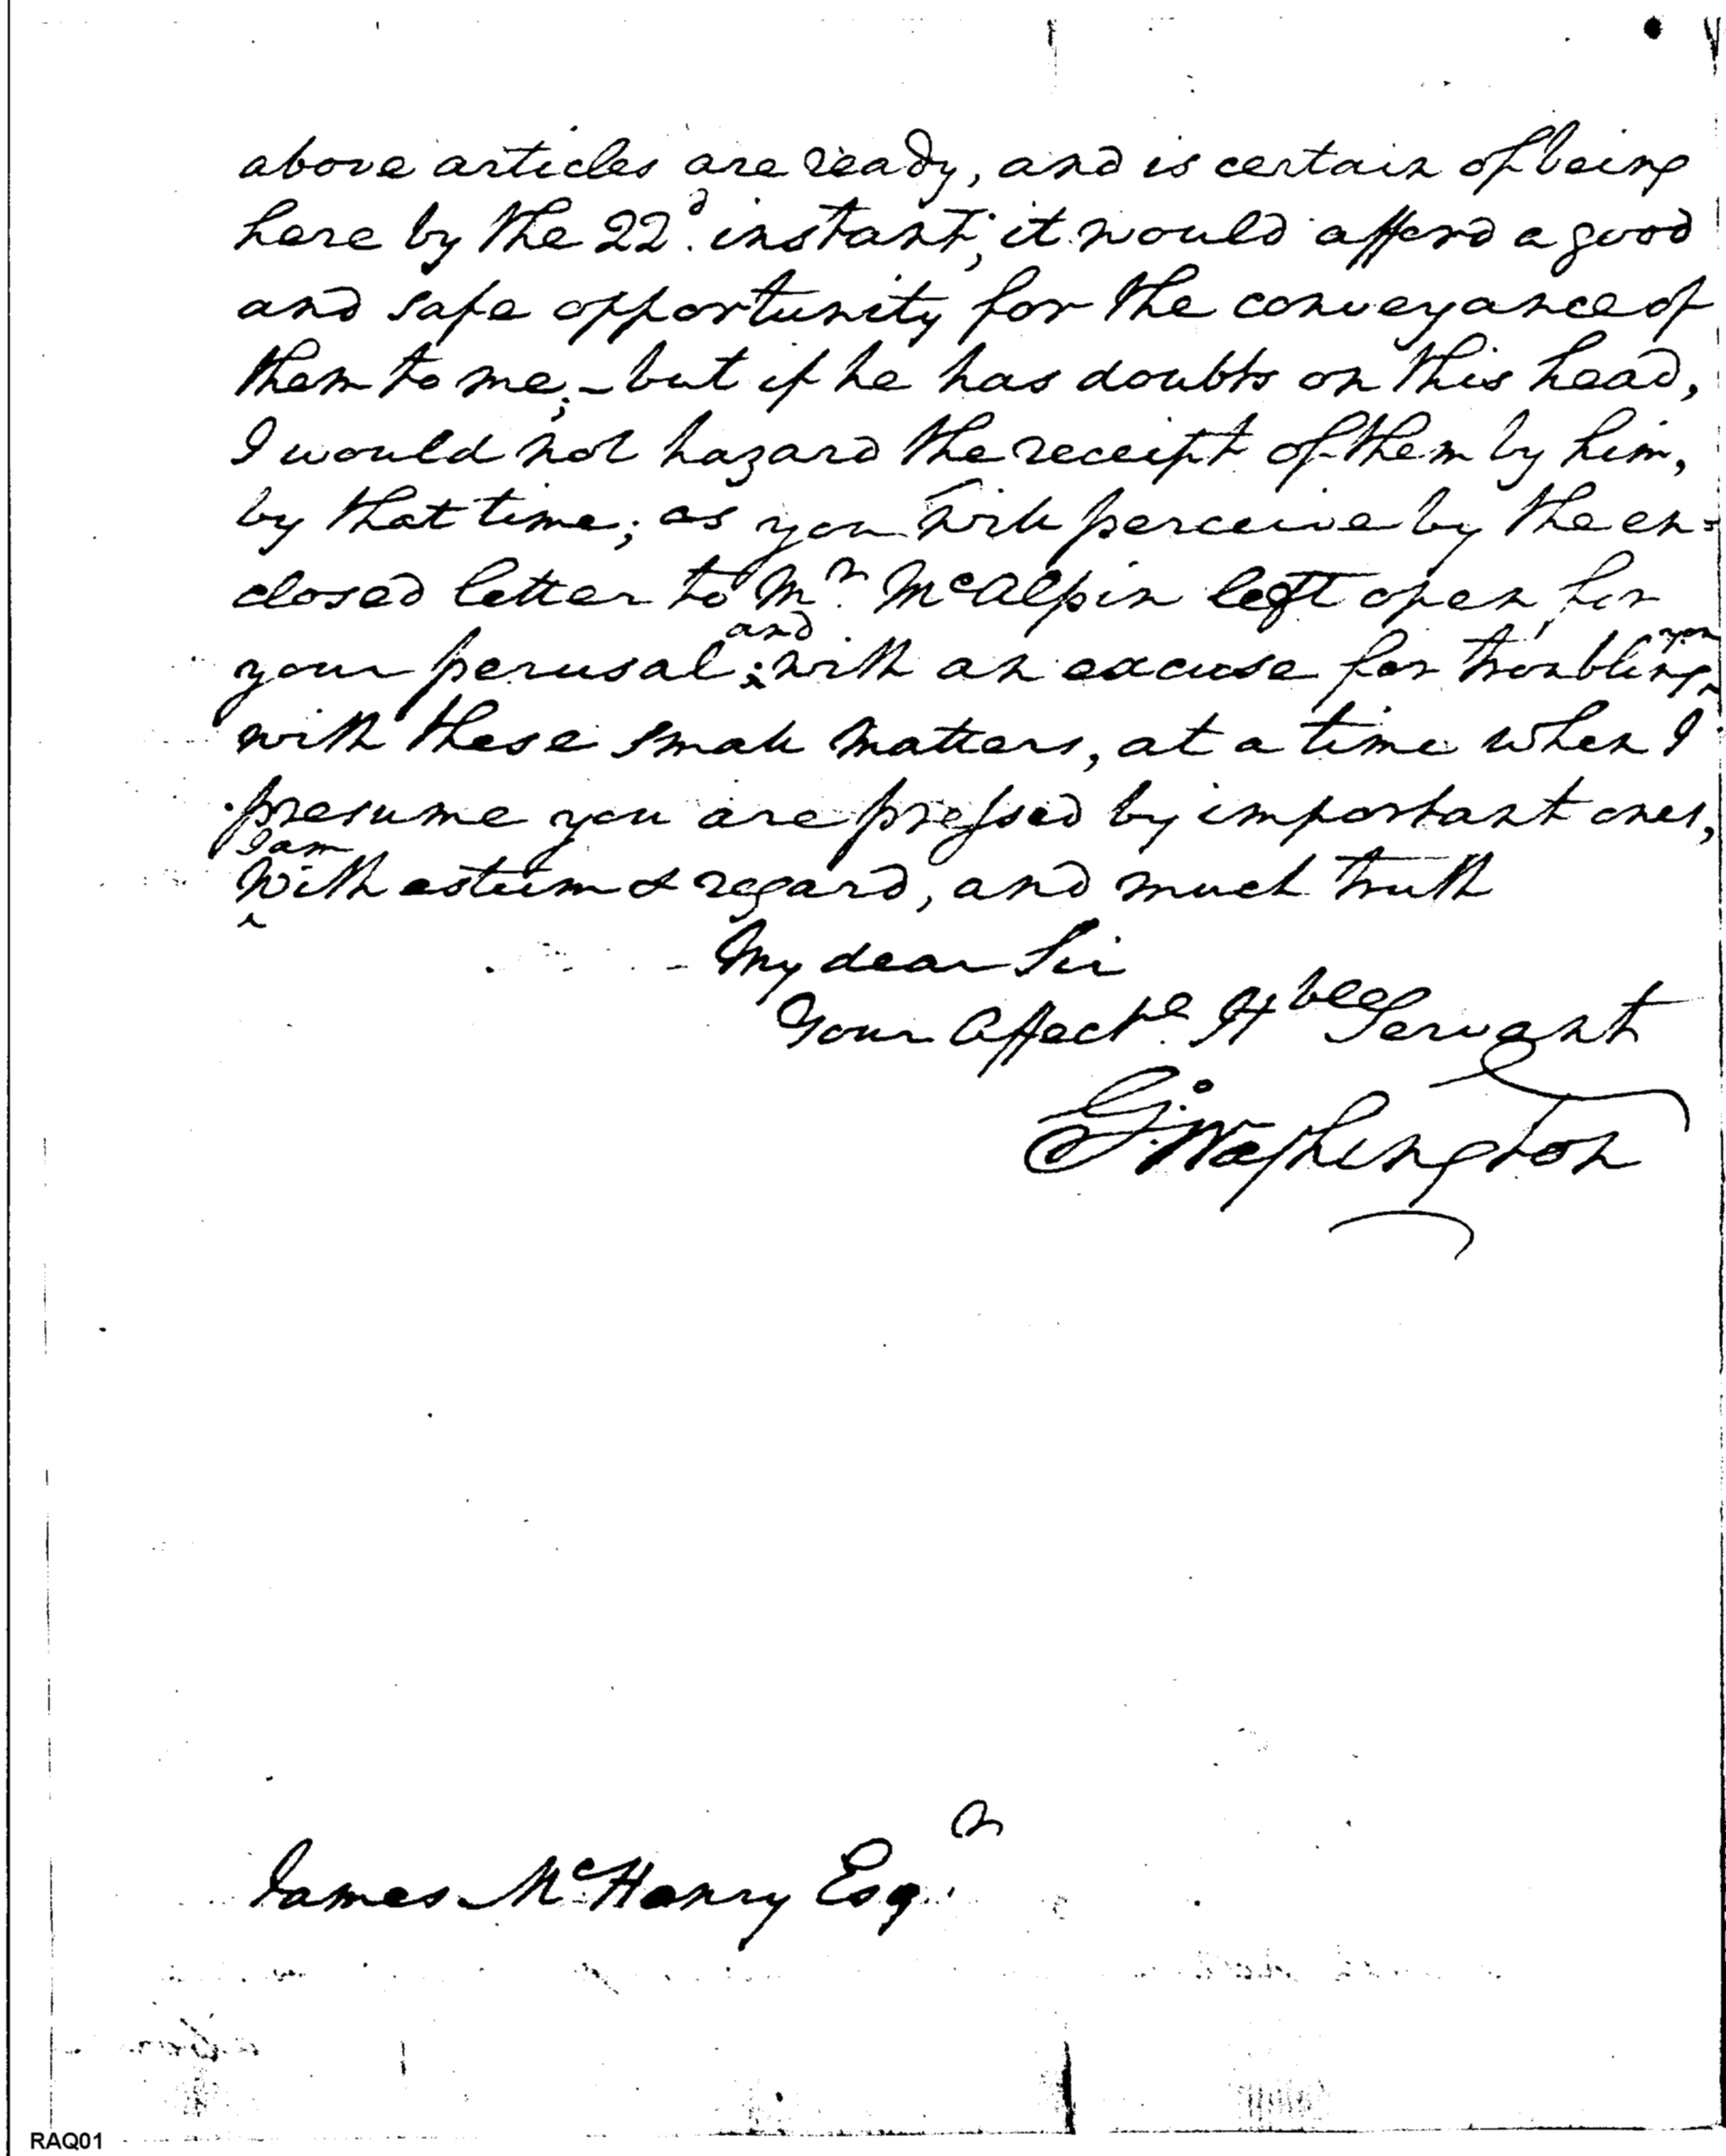 above articles are ready, and is certain of being
here by the 22d. instant; it would afford a good
and safe opportunity for the conveyance of
them to me;–but if he has doubts on this head,
I would not hazard the receipt of them by him,
by that time; as you will perceive by the en=
closed letter to Mr. McAlpin left open for
your perusal; and with an excuse for troubling you
with these small matters, at a time when I
presume you are pressed by important ones,
I am With esteem & regard, and much truth
My dear Sir
Your Affecte. Hble Servant
Go: Washington
James McHenry Esqr.
RAQ01